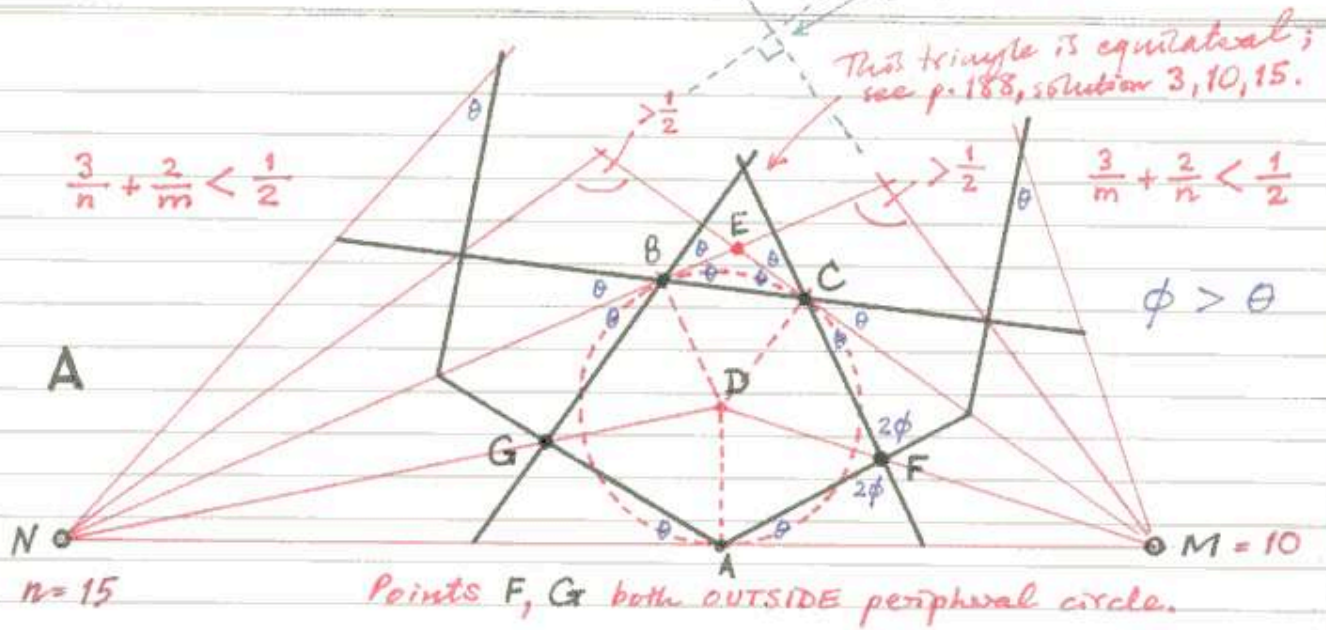 This triangle is equilateral;
see p. 188, solution 3, 10, 15.
θ
>1/2
3/n + 2/m < 1/2
>1/2
3/m + 2/n < 1/2
θ
E
B
θ
θ
θ
θ
C
ϕ > θ
θ
θ
θ
θ
A
D
2ϕ
G
F
2ϕ
N
θ
θ
M = 10
A
n = 15
Points F, G both OUTSIDE peripheral circle.